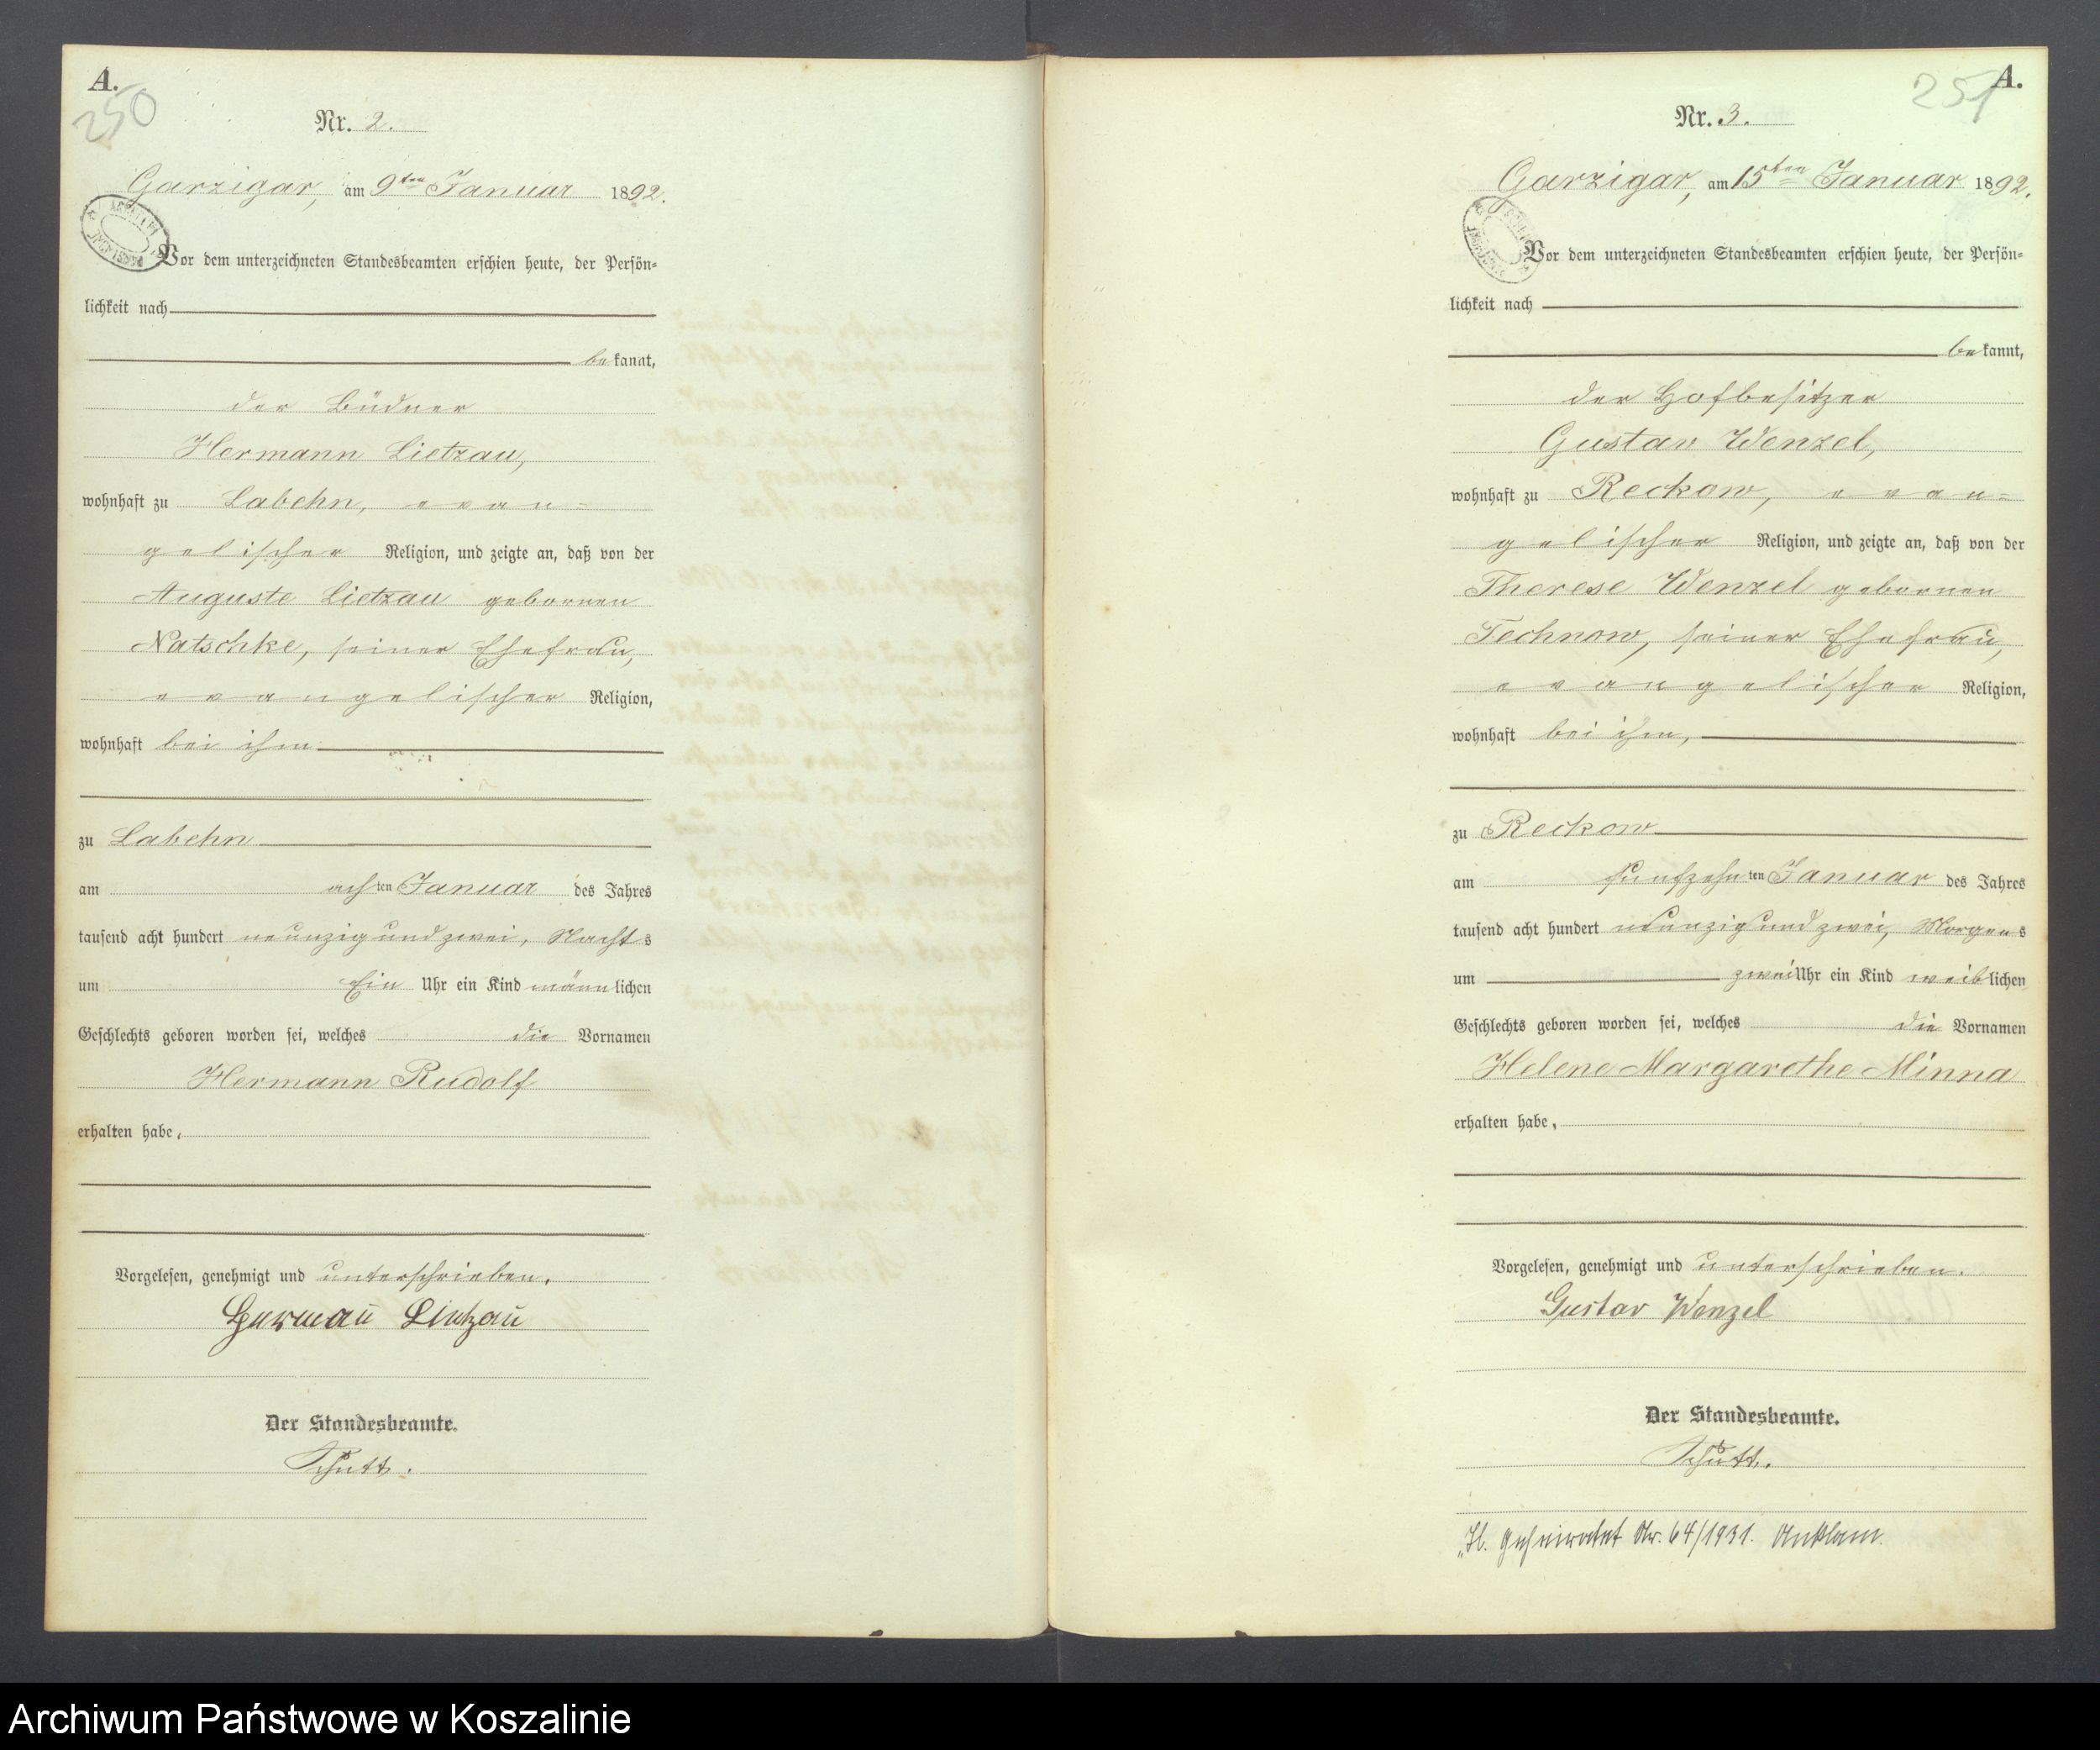 A.
250
Nr. 2.
Garzigar, am 9ten Januar 1892.
Vor dem unterzeichneten Standesbeamten erschien heute, der Persön=
lichkeit nach
bekannt,
der Büdner
Hermann Lietzau,
wohnhaft zu Labehn, evan=
gelischer Religion, und zeigte an, daß von der
Auguste Lietzau gebornen
Natschke, seiner Ehefrau,
evangelischer Religion,
wohnhaft bei ihm
zu Labehn
am achten Januar des Jahres
tausend acht hundert neunzig und zwei, Nachts
um Ein Uhr ein Kind männlichen
Geschlechts geboren worden sei, welches die Vornamen
Hermann Rudolf
erhalten habe.
Vorgelesen, genehmigt und unterschrieben.
Herman̄ Lietzau
Der Standesbeamte.
Schütt.
A.
251
Nr. 3.
Garzigar, am 15ten Januar 1892.
Vor dem unterzeichneten Standesbeamten erschien heute, der Persön=
lichkeit nach
bekannt,
der Hofbesitzer
Gustav Wenzel,
wohnhaft zu Reckow, evan=
gelischer Religion, und zeigte an, daß von der
Therese Wenzel gebornen
Technow, seiner Ehefrau,
evangelischer Religion,
wohnhaft bei ihm,
zu Reckow
am funfzehnten Januar des Jahres
tausend acht hundert neunzig und zwei, Morgens
um zwei Uhr ein Kind weiblichen
Geschlechts geboren worden sei, welches die Vornamen
Helene Margarethe Minna
erhalten habe.
Vorgelesen, genehmigt und unterschrieben.
Gustav Wenzel
Der Standesbeamte.
Schütt.
geheiratet Nr. 64/1931. Anklam.
Archiwum Państwowe w Koszalinie